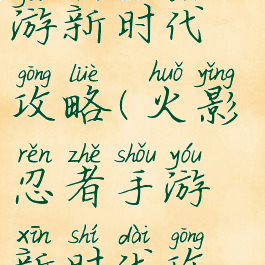 游新时代
gōng lüè huǒ yǐng
攻略(火影
rěn zhě shǒu yóu
忍者手游
xīn shí dài gōng
新时代攻